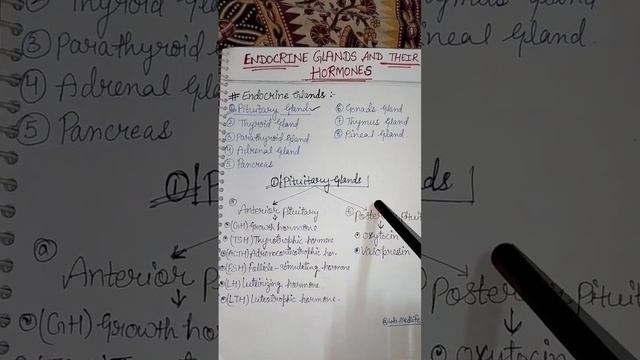 ENDOCRINE GLANDS AND THEIR
HORMONES
# Endocrine Glands :-
① Pituitary Gland ✓
② Thyroid Gland
③ Parathyroid Gland
④ Adrenal Gland
⑤ Pancreas
⑥ Gonads Gland
⑦ Thymus Gland
⑧ Pineal Gland
① Pituitary Glands
ⓐ Anterior Pituitary
(GH) Growth hormone
(TSH) Thyrotrophic hormone
(ACTH) Adrenocorticotrophic hor.
(FSH) Follicle-stimulating hormone
(LH) Luteinizing hormone
(LTH) Luteotrophic hormone.
Oxytocin
Vasopressin